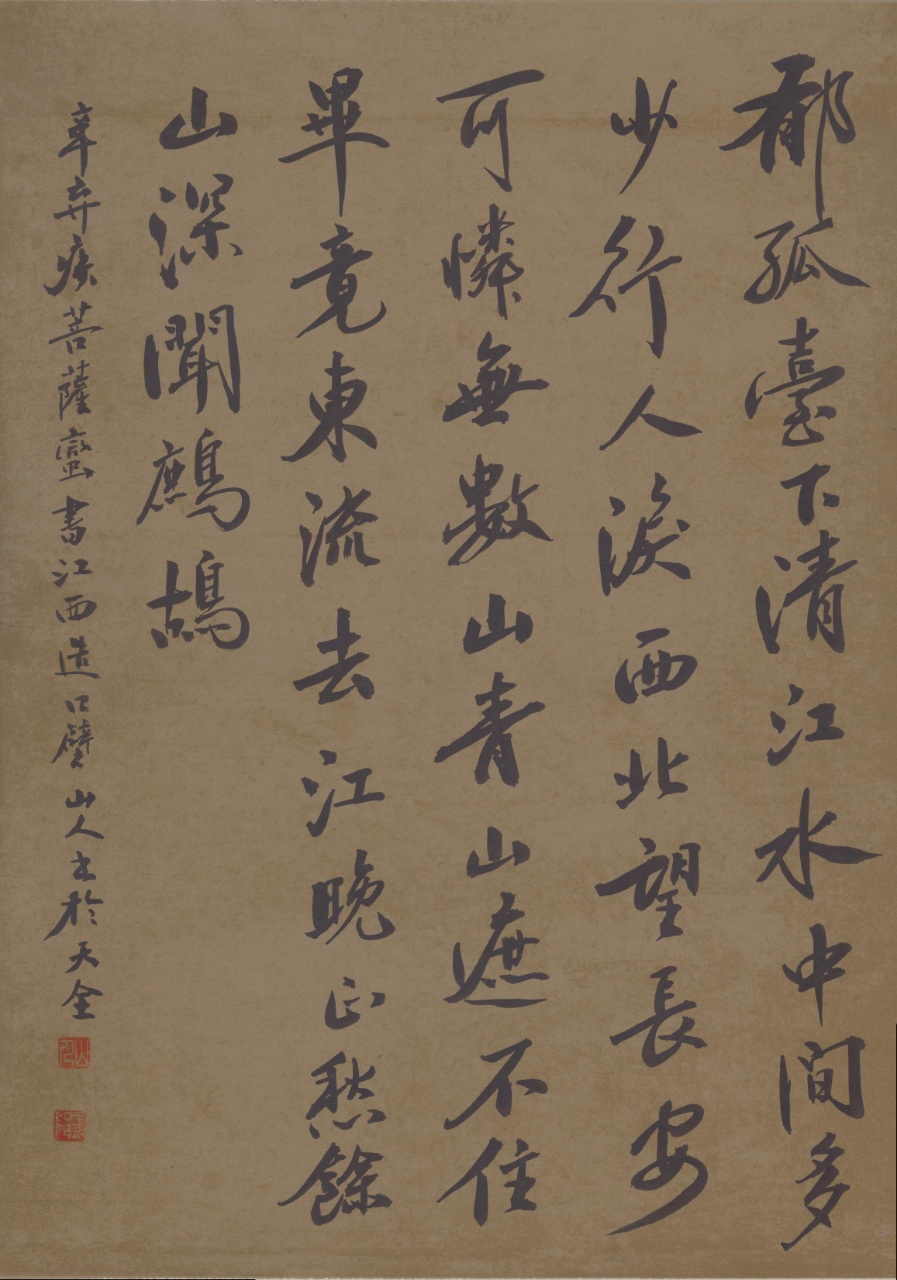 郁孤臺下清江水中間多
少行人淚西北望長安
可憐無數山青山遮不住
畢竟東流去江晚正愁餘
山深聞鷓鴣
辛弃疾菩薩蠻書江西造口壁山人书於天全
山人